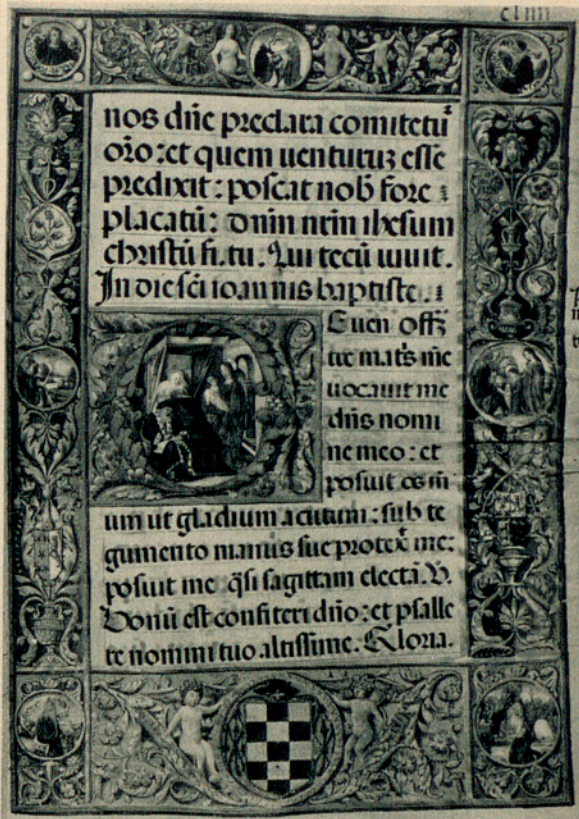 cliiii
nos dñe preclara comitetu
oro: et quem uenturuz esse
predixit: poscat nob fore
placatū: dnm nrm ihesum
christū fi. tu. Qui tecū uiuit.
In die sci ioannis baptiste.
E uen offz
tre mats me
uocauit me
dñs nomi
ne meo: et
posuit os m
um ut gladium acutum: sub te
gumento manus sue protex me:
posuit me qsi sagittam electā. V.
Bonū est confiteri dño: et psalle
re nomini tuo altissime. Gloria.